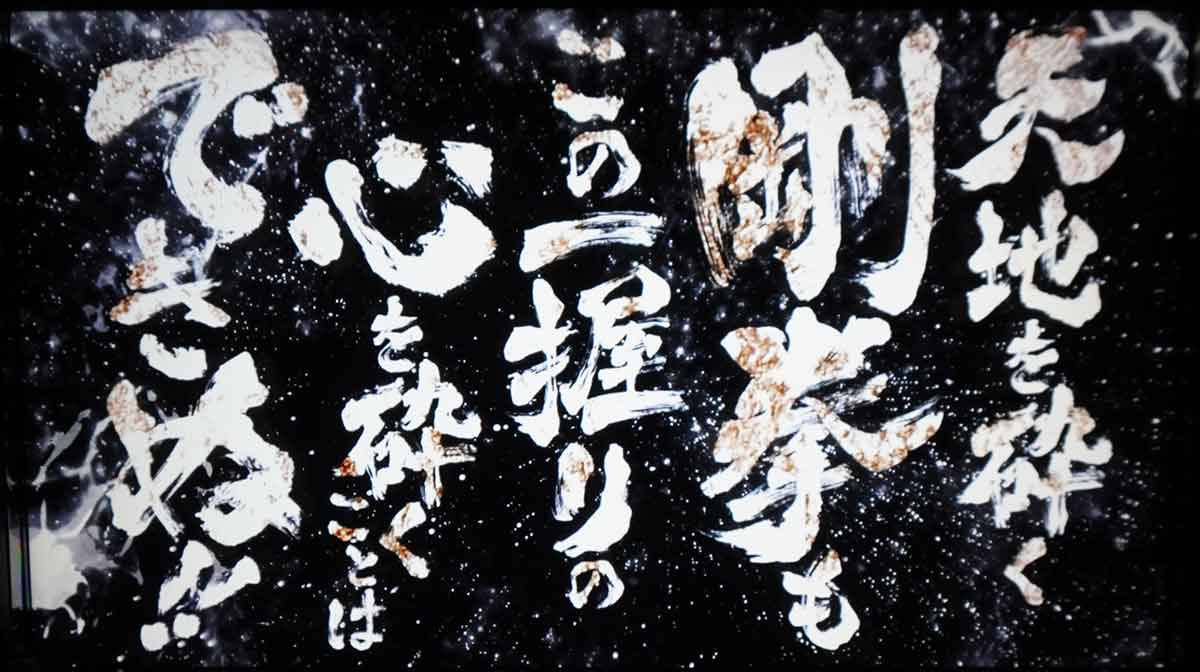 天地を砕く
剛拳も
この一握りの
心を砕くことは
できぬ!!